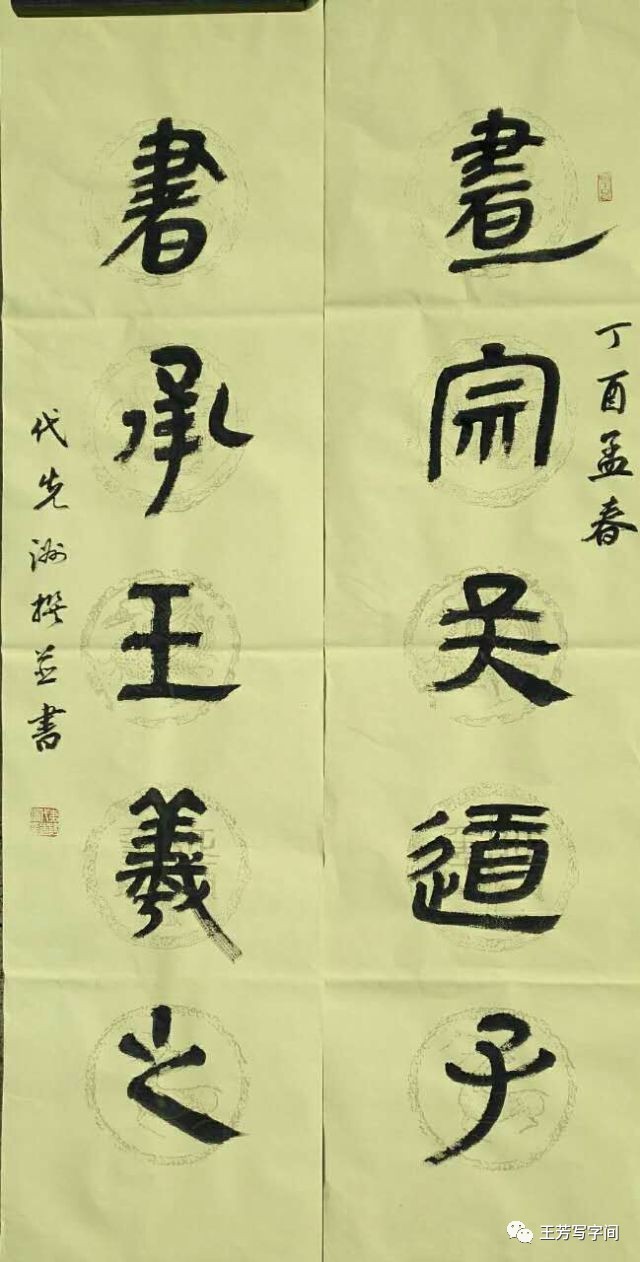 丁酉孟春
畫宗吴道子
書承王羲之
代先撰並書
王芳写字间